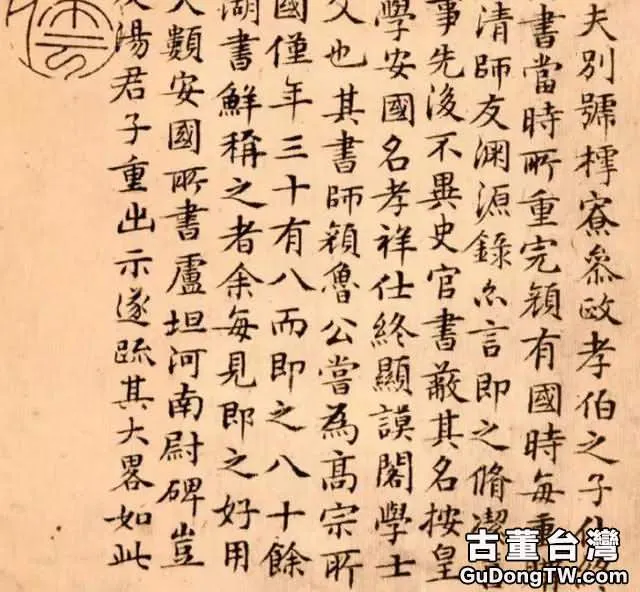 夫别號樗寮叅政孝伯之子仕終
書當時所重完顔有國時每重購
清師友渊源錄亦言即之脩潔
事先後不異史官書蔽其名按皇
學安國名孝祥仕終顯謨閣學士
父也其書師顔魯公嘗為髙宗所
國僅年三十有八而即之八十餘
湖書鮮稱之者余每見即之好用
大類安國所書盧坦河南尉碑豈
湯君子重出示遂疏其大畧如此
古董台灣
GuDongTW.com